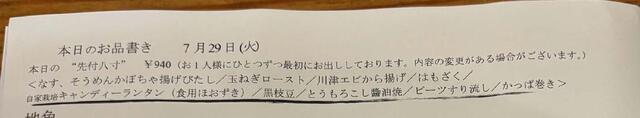 本日のお品書き　７月29日(火)
本日の “先付八寸” ￥940（お１人様にひとつずつ最初にお出ししております。内容の変更がある場合がございます。）
＜なす、そうめんかぼちゃ揚げびたし／玉ねぎロースト／川津エビから揚げ／はもざく／
自家栽培キャンディーランタン（食用ほおずき）／黒枝豆／とうもろこし醬油焼／ビーツすり流し／かっぱ巻き＞